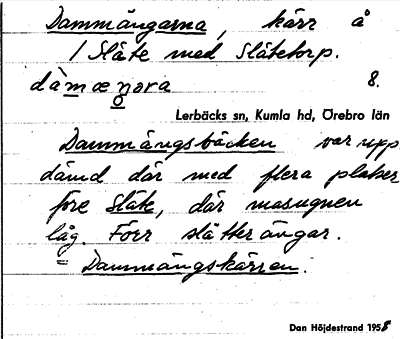 Dammängarna, kärr å
1 Slåte med Slåtetorp.
dàmæŋɷra 8.
Lerbäcks sn, Kumla hd, Örebro län
Dammängsbäcken var upp
dämd där med flera platser
före Slåte, där masugnen
låg. Förr slåtterängar.
= Dammängskärren.
Dan Höjdestrand 1958